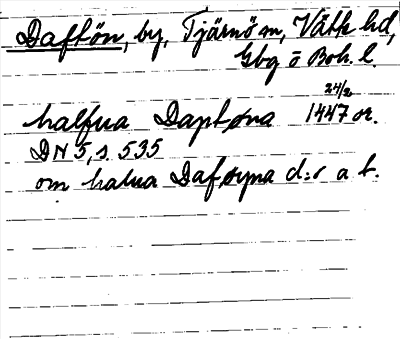 Daftön, by, Tjärnö sn, Vätte hd,
Gbg o Boh. l.
halfua Daptøna 24/2 1447 or.
DN 5, s. 535
om halua Daføyna d:o a t.